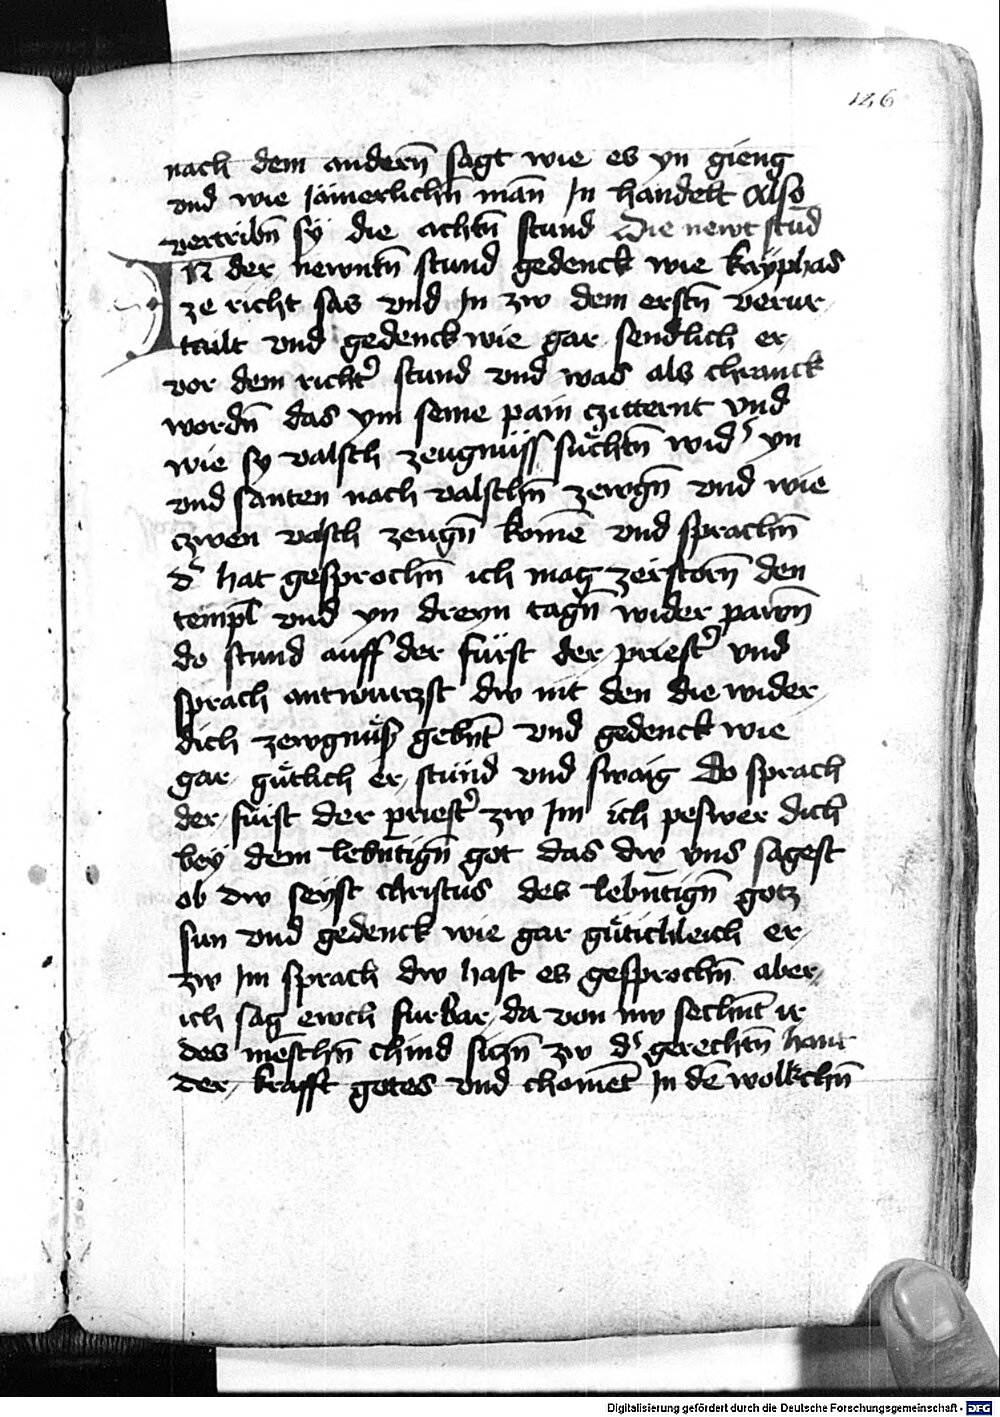 126
nach dem andern̄ sagt wie es yn gieng
vnd wie jämerlichn̄ man̄ jn handelt Also
vertribn̄ sy die achtn̄ stund Die newt stūd
IN der newntn̄ stund gedenck wie kayphas
ze richt sas vnd jn zw dem erstn̄ verur
tailt vnd gedenck wie gar sendlich er
vor dem richt stund vnd was als chranck
wordn̄ das ym seine pain czitternt vnd
wie sy valsch zeugnüss süchtn̄ wid yn
vnd santen nach valschn̄ zewgn̄ vnd wie
czwen valsch zeugn̄ komē vnd sprachn̄
d hat gesprochn̄ ich mag zerstorn̄ den
templ vnd yn dreyn tagn̄ wider pawn̄
do stund auff der fürst der priest vnd
sprach antwurtzst dw nit den die wider
dich zewgnüs gebnt̄ vnd gedenck wie
gar gütlich er stünd vnd swaig Do sprach
der fürst der priest zw jm ich peswer dich
bey dem lebnt̄ign̄ got das dw vns sagest
ob dw seyst christus des lebnt̄ign̄ gotz
sun vnd gedenck wie gar gütichleich er
zw jm sprach dw hast es gesprochn̄ aber
ich sag ewch furbar da von nw sechnt̄ ir
des mēschn̄ chind siczn̄ zw d gerechtn̄ hant
der krafft gotes vnd chomet̄ jn dē wolkchn̄
Digitalisierung gefördert durch die Deutsche Forschungsgemeinschaft - DFG